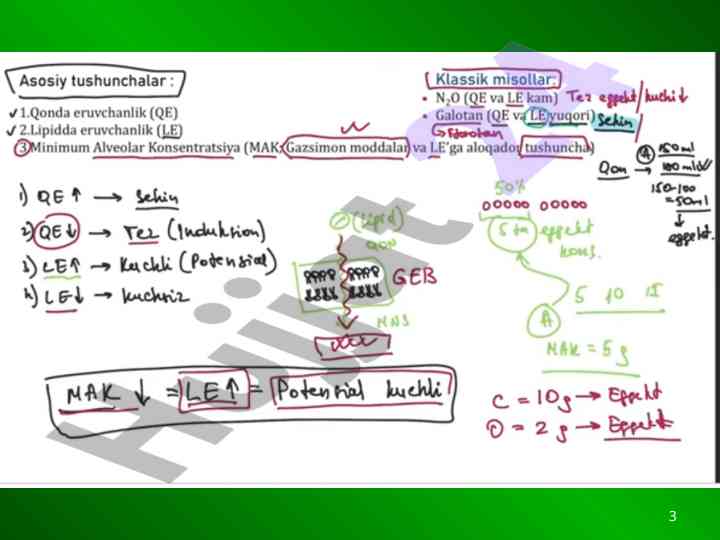 Asosiy tushunchalar :
✓ 1.Qonda eruvchanlik (QE)
✓ 2.Lipidda eruvchanlik (LE)
3.Minimum Alveolar Konsentratsiya (MAK; Gazsimon moddalar va LE'ga aloqador tushuncha)
Klassik misollar:
• N₂O (QE va LE kam) Tez effekt/kuchi↓
• Galotan (QE va LE yuqori) Sekin
↳ Ftorotan
1) QE ↑ → Sekin
2) QE↓ → Tez (Induktsion)
3) LE↑ → Kuchli (Potensial)
4) LE↓ → kuchsiz
(Lipid)
QON
GEB
MNS
50%
5 ta effekt
kons.
5 10 15
A
MAK = 5 g
A 150ml
Qon → 100ml
150-100
=50ml
↓
effekt.
MAK ↓ = LE↑ = Potensial kuchli
C = 10g → Effekt
D = 2 g → Effekt
Hujjat
3